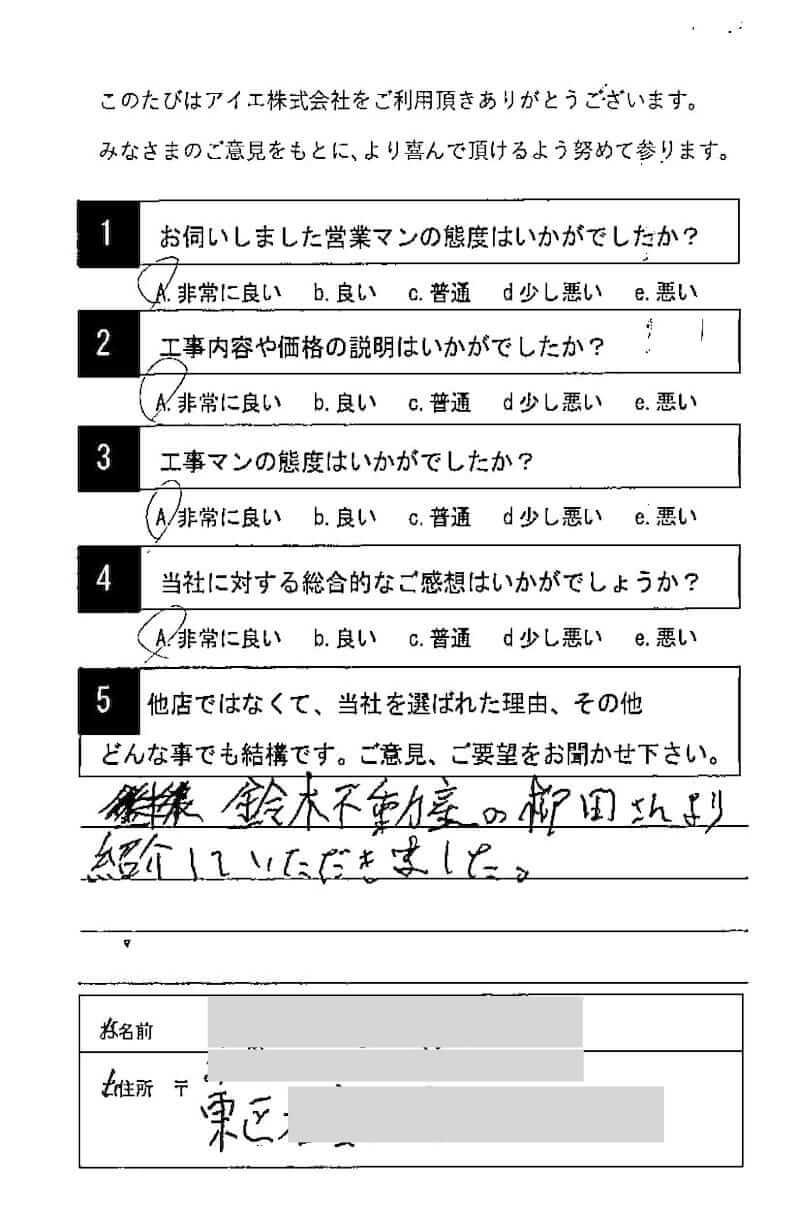 このたびはアイエ株式会社をご利用頂きありがとうございます。
みなさまのご意見をもとに、より喜んで頂けるよう努めて参ります。
1 お伺いしました営業マンの態度はいかがでしたか？
A. 非常に良い b. 良い c. 普通 d 少し悪い e. 悪い
2 工事内容や価格の説明はいかがでしたか？
A. 非常に良い b. 良い c. 普通 d 少し悪い e. 悪い
3 工事マンの態度はいかがでしたか？
A. 非常に良い b. 良い c. 普通 d 少し悪い e. 悪い
4 当社に対する総合的なご感想はいかがでしょうか？
A. 非常に良い b. 良い c. 普通 d 少し悪い e. 悪い
5 他店ではなくて、当社を選ばれた理由、その他
どんな事でも結構です。ご意見、ご要望をお聞かせ下さい。
鈴木不動産の柳田さんより
紹介していただきました。
お名前
お住所 〒
東区